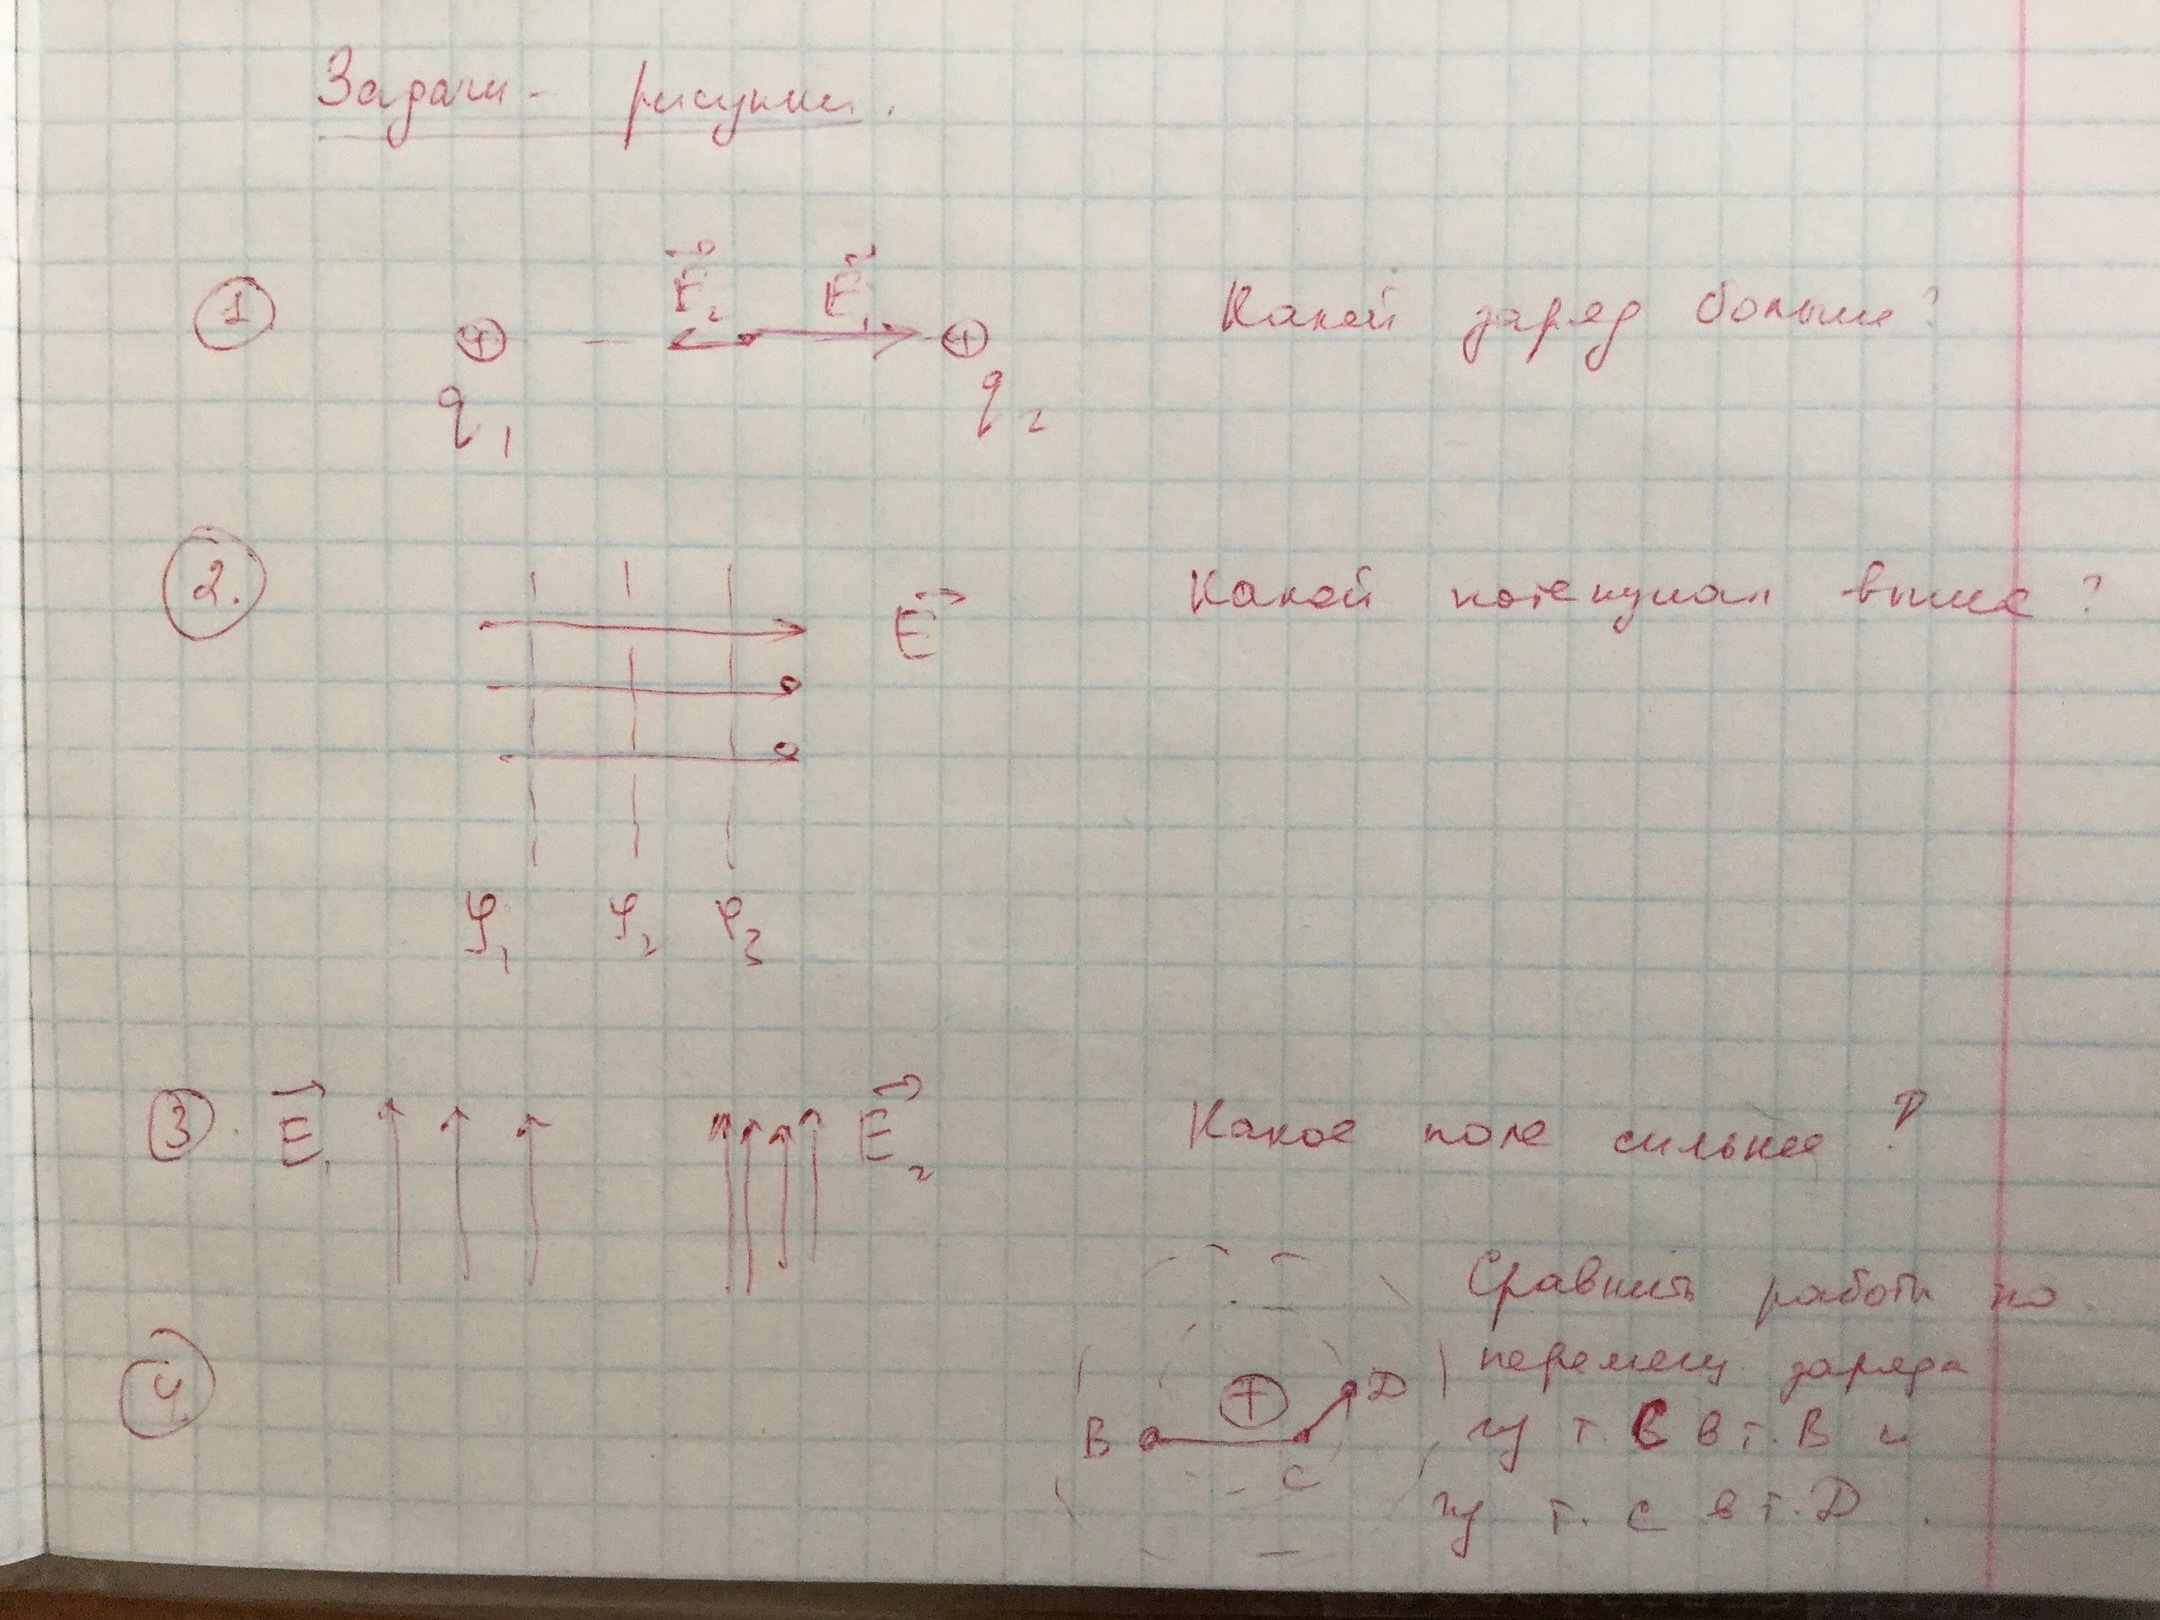 Задачи - рисунки.
1 E₂ E₁ Какой заряд больше?
+ +
q₁ q₂
2. E Какой потенциал выше?
φ₁ φ₂ φ₃
3. E₁ E₂ Какое поле сильнее?
4. Сравнить работы по
перемещ. заряда
+ D
B C
из т. C в т. B и
из т. C в т. D.